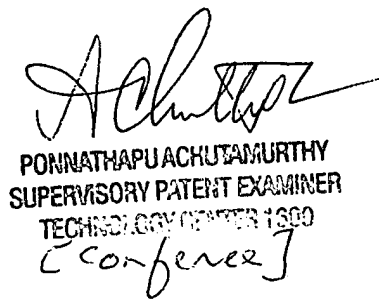 PONNATHAPU ACHUTAMURTHY
SUPERVISORY PATENT EXAMINER
TECHNOLOGY CENTER 1600
[conferee]